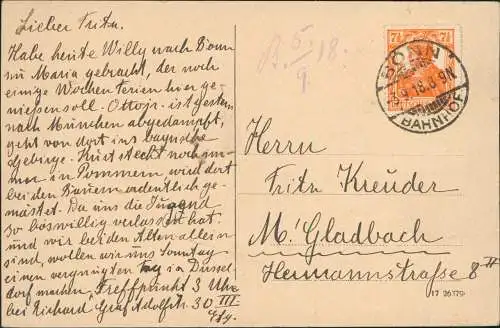 Lieber Fritz.
Habe heute Willy nach Bonn
zu Maria gebracht, der noch
einige Wochen Ferien hier ge-
niessen soll. Otto jr. ist gestern
nach München abgedampft,
geht von dort ins bayrische
Gebirge. Kurt steckt noch im-
mer in Pommern, wird dort
bei den Bauern ordentlich ge-
mästet. Da uns die Jugend
so böswillig verlassen hat
und wir beiden Alten allein
sind, wollen wir uns Sonntag
einen vergnügten Tag in Düssel-
dorf machen, Treffpunkt 3 Uhr
bei Richard, Graf Adolfstr. 30 III
5/9 18.
7½ 7½
BONN
5.9.18. 8-9N
BAHNHOF
Herrn
Fritz Kreuder
M. Gladbach
Hermannstrasse 8 II
17 26179